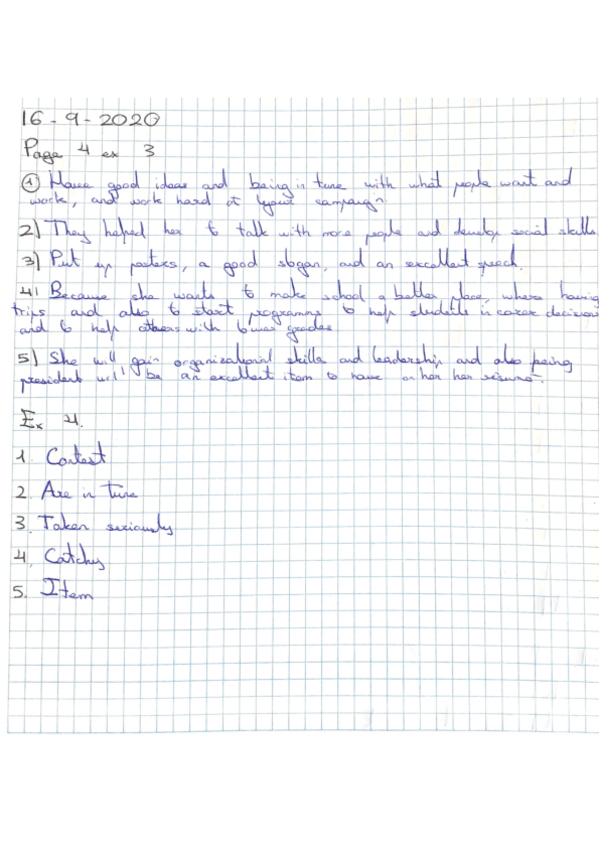 16-9-2020
Page 4 ex 3
① Have good ideas and being in tune with what people want and
work, and work hard at your campaign
2) They helped her to talk with more people and develop social skills
3) Put up posters, a good slogan, and an excellent speech.
4) Because she wants to make school a better place, where having
trips and also to start programms to help students in career decisions
and to help others with lower grades
5) She will gain organizational skills and leadership and also being
president will be an excellent item to have on her her résumé.
Ex 4.
1. Contest
2. Are in tune
3. Taken seriously
4. Catchy
5. Item